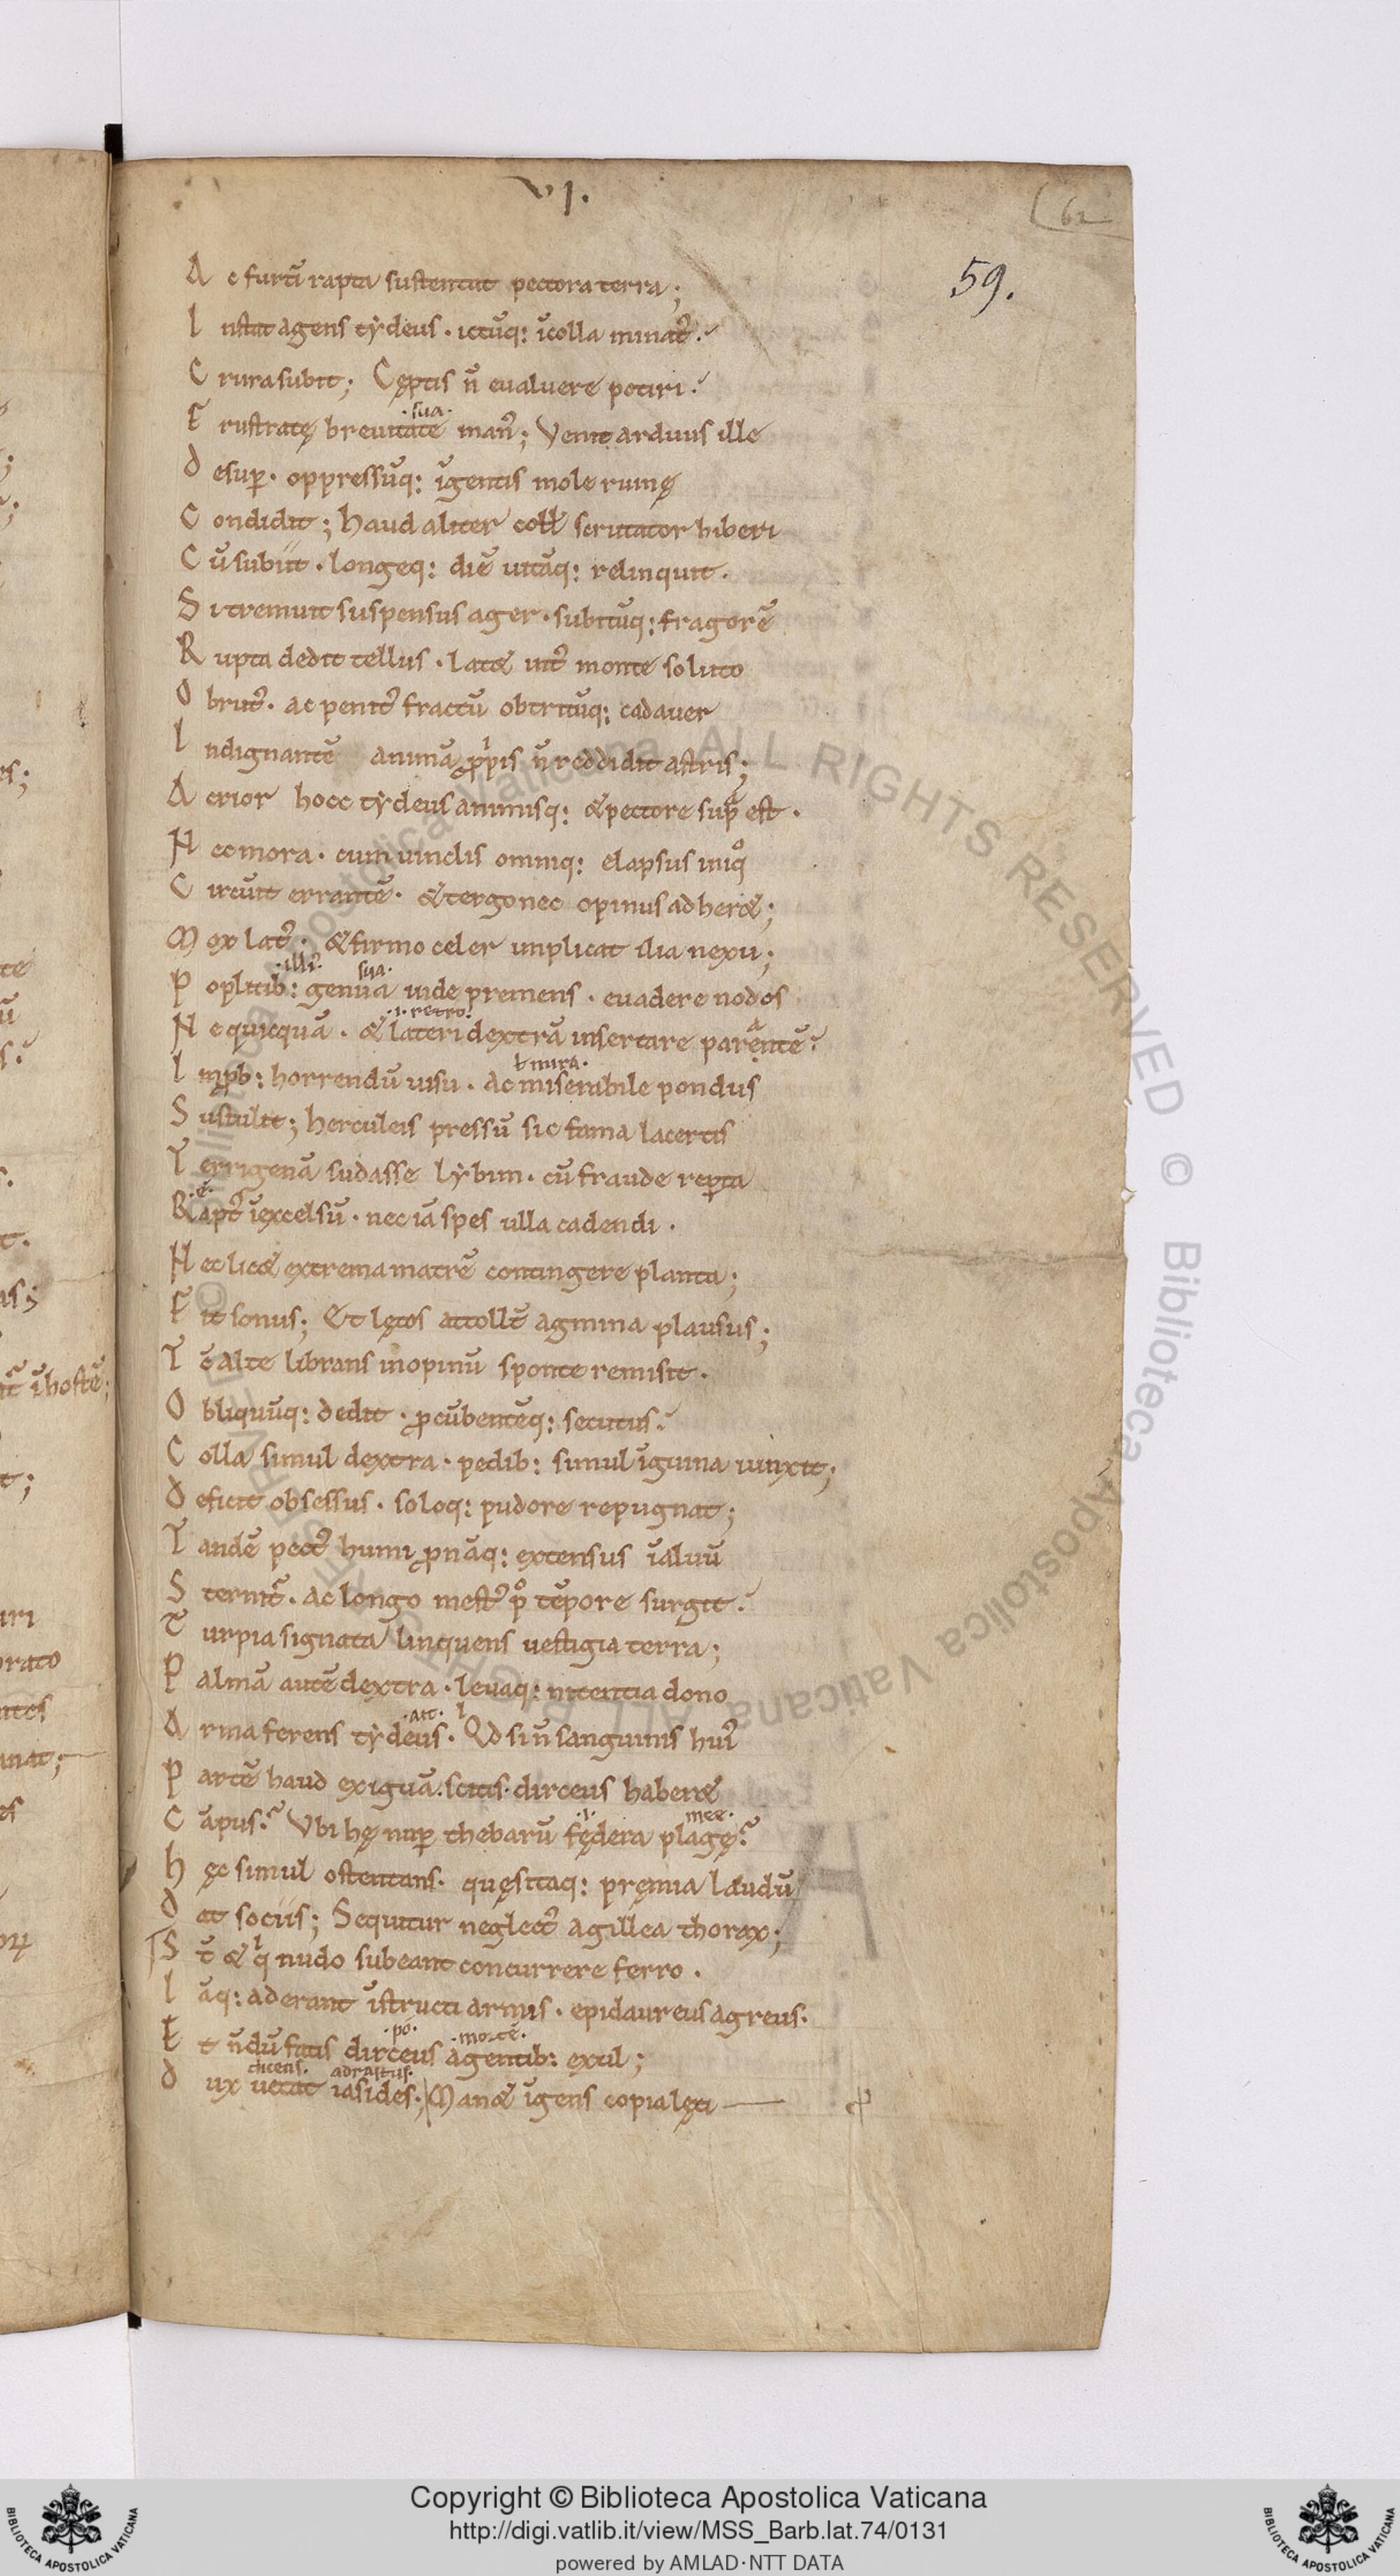 VI.
62
59.
A c furtī rapta sustentat pectora terra;
I nstat agens tẏdeus · ictūq: īcolla minat᷒ ·
C rura subit; Cęptis n̄ eualuere potiri ·
·sua·
F rustratę breuitate man᷒; Venit arduus ille
D esup̱ · oppressūq: īgentis mole ruinę
C ondidit; haud aliter coll̄ scrutator hiberi
C ū subiit · longeq: diē uitāq: relinquit ·
S i tremuit suspensus ager · subitūq: fragorē
R upta dedit tellus · latæ int᷒ monte soluto
O brut᷒ · ac penit᷒ fractū obtritūq: cadauer
I ndignantē animā ꝓpͥis n̄ reddidit astris;
A crior hocc tẏdeus animisq: & pectore sup̄ est ·
N ec mora · cum uinclis onniq: elapsus iniqͦ
C ircuit errantē · & tergo nec opinus adheræ;
M ox lat᷒ · & firmo celer implicat ilia nexu;
·illi᷒· sua·
P oplitib: genua inde premens · euadere nodos
·i· retro·
N equicquā · & lateri dextrā insertare parentē
ł mira·
I mꝓb: horrendū uisu · ac miserabile pondus
S ustulit; herculeis pressū sic fama lacertis
T errigenā sudasse lẏbim · cū fraude rep̱ta
·ē·
R apt᷒ īexcelsū · nec iā spes ulla cadendi ·
N ec licæ extrema matrē contingere planta;
F it sonus; Et lętos attollt̄ agmina plausus;
T c̄ Alte librans inopinū sponte remisit ·
O bliquūq: dedit · ꝓcūbentēq: secutus
C olla simul dextra · pedib: simul īguina uinxit;
D eficit obsessus · soloq: pudore repugnat;
T andē pect᷒ humi ꝓnāq: extensus īaluū
S ternit᷒ · ac longo mest᷒ pͦ tēpore surgit
T urpia signata linquens uestigia terra;
P almā autē dextra · leuaq: nitentia dono
·att· ł
A rma ferens tẏdeus · Qd si n̄ sanguinis hui᷒
P artē haud exiguā · scitis · dirceus haberæ
·i· mee·
C āpus? Vbi hę nup̱ thebarū fędera plagę?
H ęc simul ostentans · quęsitaq: pręmia laudū
D at sociis; Sequitur neglect᷒ agillea thorax;
S t̄ & qͥ nudo subeant concurrere ferro ·
I āq: aderant īstructi armis · epidaureus agreus ·
·po· ·mortē·
E t n̄dū fatis dirceus agentib: exul;
dicens· adrastus·
D ux uetat iasides; Manæ īgens copia lęti